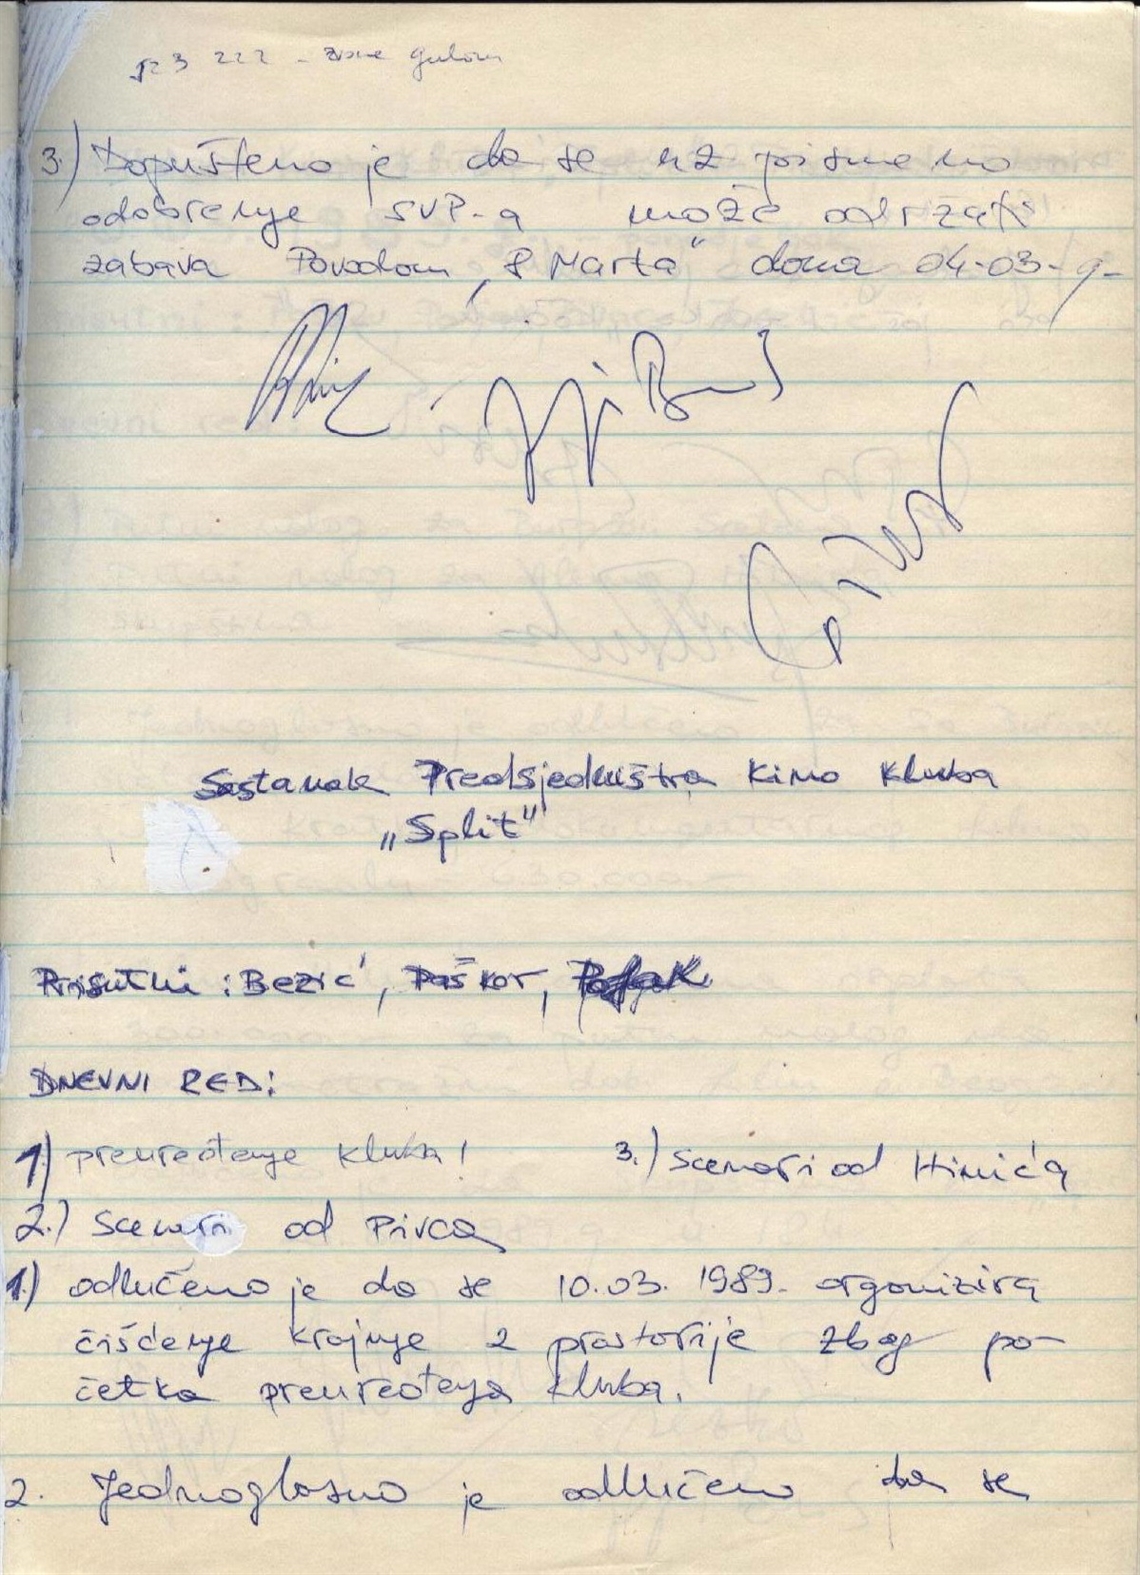 3.) Dopušteno je da se uz pismeno
odobrenje SVP-a može održati
zabava Povodom „8 Marta“ dana 04-03-
Sastanak Predsjedništva Kino Kluba
„Split“
Prisutni : Bezić, Paškor,
DNEVNI RED:
1) preuređenje kluba! 3.) Scenari od Himića
2.) Scenari od Pivca
1.) odlučeno je da se 10.03. 1989. organizira
čišćenje krajnje 2 prostorije zbog po-
četka preuređenja kluba.
2. Jednoglasno je odlučeno da se